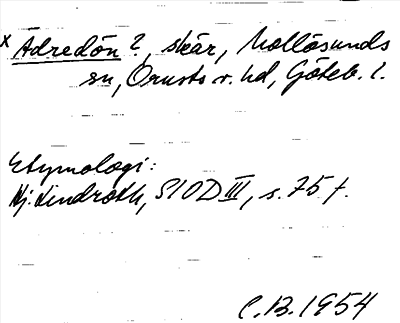 x Ådredön?, skär, Mollösunds
sn, Orusts v. hd, Göteb. l.
Etymologi:
Hj. Lindroth, SIOD III, s. 75 f.
C.B. 1954